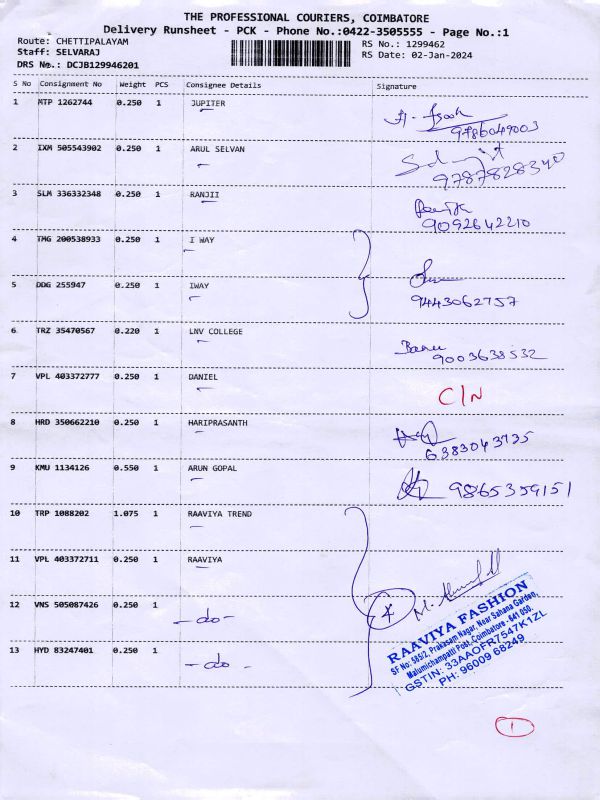 THE PROFESSIONAL COURIERS, COIMBATORE
Delivery Runsheet - PCK - Phone No.:0422-3505555 - Page No.:1
Route: CHETTIPALAYAM RS No.: 1299462
Staff: SELVARAJ RS Date: 02-Jan-2024
DRS No.: DCJB129946201
S No Consignment No Weight PCS Consignee Details Signature
1 MTP 1262744 0.250 1 JUPITER
9786049003
2 IXM 505543902 0.250 1 ARUL SELVAN
9787828340
3 SLM 336332348 0.250 1 RANJII
9092642210
4 TMG 200538933 0.250 1 I WAY
5 DDG 255947 0.250 1 IWAY
9443062757
6 TRZ 35470567 0.220 1 LNV COLLEGE
9003638532
7 VPL 403372777 0.250 1 DANIEL C/N
8 HRD 350662210 0.250 1 HARIPRASANTH
6383043735
9 KMU 1134126 0.550 1 ARUN GOPAL 9865359151
10 TRP 1088202 1.075 1 RAAVIYA TREND
11 VPL 403372711 0.250 1 RAAVIYA
12 VNS 505087426 0.250 1 -do- 4
13 HYD 83247401 0.250 1 -do-
RAAVIYA FASHION
SF No: 585/2, Prakasam Nagar, Near Sahana Garden,
Malumichampatti Post, Coimbatore - 641 050.
GSTIN: 33AAOFR7547K1ZL
PH: 96009 68249
1